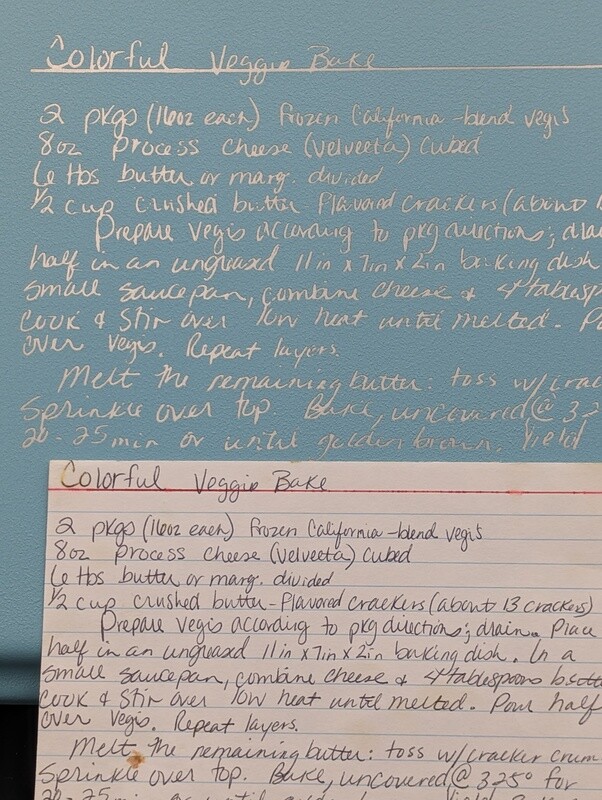 Colorful Veggie Bake
2 pkgs (16oz each) frozen California-blend vegis
8oz process cheese (Velveeta) cubed
6 tbs butter or marg. divided
1/2 cup crushed butter flavored crackers (about 1
Prepare vegis according to pkg directions; drai
half in an ungreased 11in x 7in x 2in baking dish
small saucepan, combine cheese & 4 tablesp
cook & stir over low heat until melted. Po
over vegis. Repeat layers.
Melt the remaining butter: toss w/crac
Sprinkle over top. Bake, uncovered @ 325
20-25 min or until golden brown. Yield
Colorful Veggie Bake
2 pkgs (16oz each) frozen California-blend vegis
8oz process cheese (Velveeta) cubed
6 tbs butter or marg. divided
1/2 cup crushed butter-flavored crackers (about 13 crackers)
Prepare vegis according to pkg directions; drain. Place
half in an ungreased 11in x 7in x 2in baking dish. In a
small saucepan, combine cheese & 4 tablespoons butte
cook & stir over low heat until melted. Pour half
over vegis. Repeat layers.
Melt the remaining butter: toss w/cracker crum
Sprinkle over top. Bake, uncovered @ 325° for
20-25 min or until golden